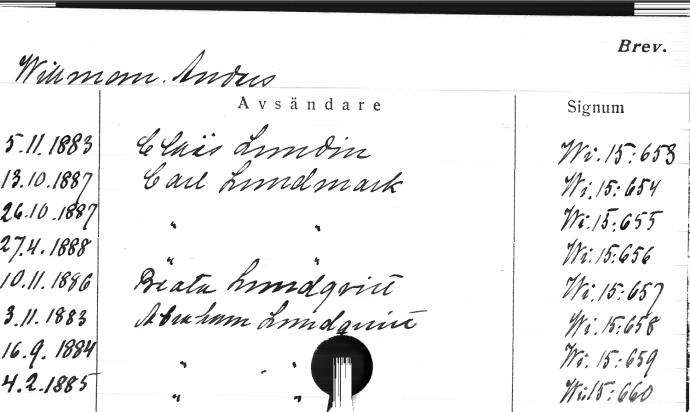 Brev.
Willman. Anders
Avsändare Signum
5.11.1883 Claës Lundin Wi.15:653
13.10.1887 Carl Lundmark Wi.15:654
26.10.1887 " " Wi.15:655
27.4.1888 " " Wi.15:656
10.11.1886 Beata Lundqvist Wi.15:657
3.11.1883 Abraham Lundqvist Wi.15:658
16.9.1884 " " Wi.15:659
4.2.1885 " " Wi.15:660